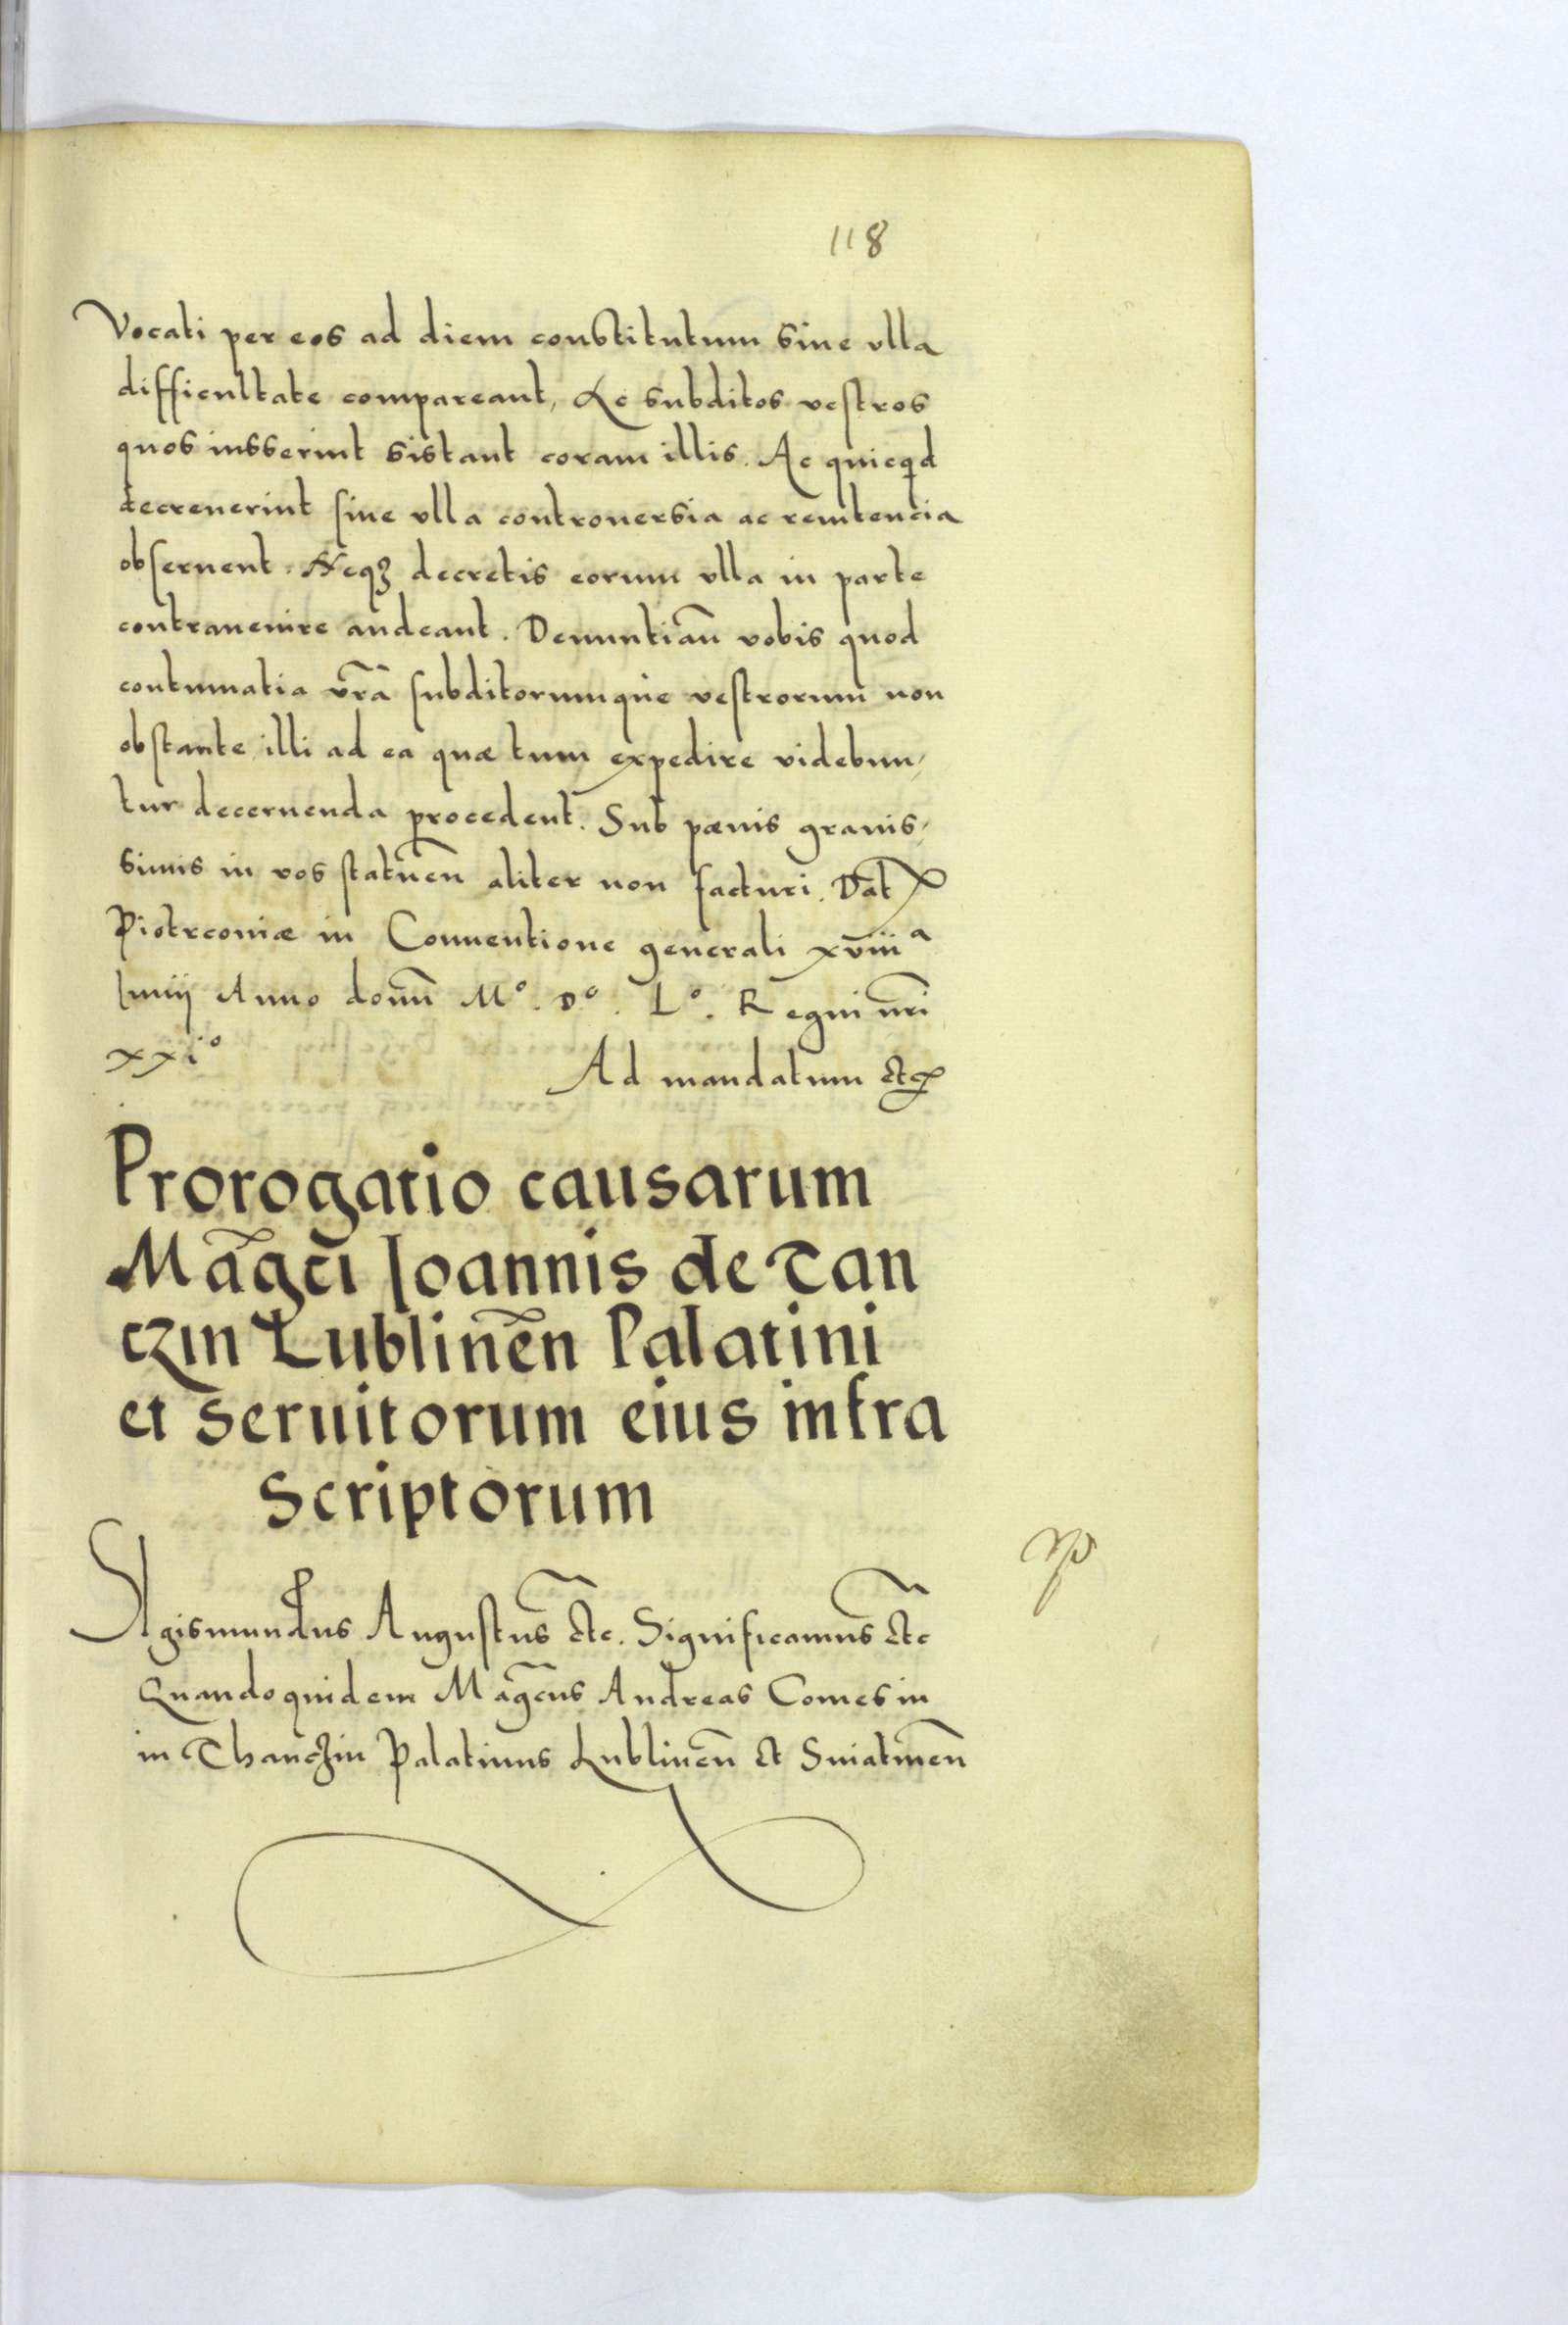 118
Vocati per eos ad diem constitutum sine ulla
difficultate compareant, Ac subditos vestros
quos iusserint sistant coram illis. Ac quicqd
decreuerint sine ulla controuersia ac renitencia
obseruent. Neqȝ decretis eorum ulla in parte
contrauenire audeant. Denuntiãn vobis quod
contumatia vrã subditorumque vestrorum non
obstante illi ad ea quæ tum expedire videbun,
tur decernenda procedent. Sub pænis grauis,
simis in vos statuẽn aliter non facturi. Dat
Piotrconiæ in Conuentione generali xviiiª
Iunij Anno domñ Mº. Dº. Lº. Regni nrĩ
xxiº
Ad mandatum etc
Prorogatio causarum
Mãgci Ioannis de Tan
czin Lublinẽn Palatini
et seruitorum eius infra
Scriptorum
SIgismundus Augustus etc. Significamus etc
Quandoquidem Magcus Andreas Comes in
in Thanczin Palatinus Lublinẽn et Sniatinẽn